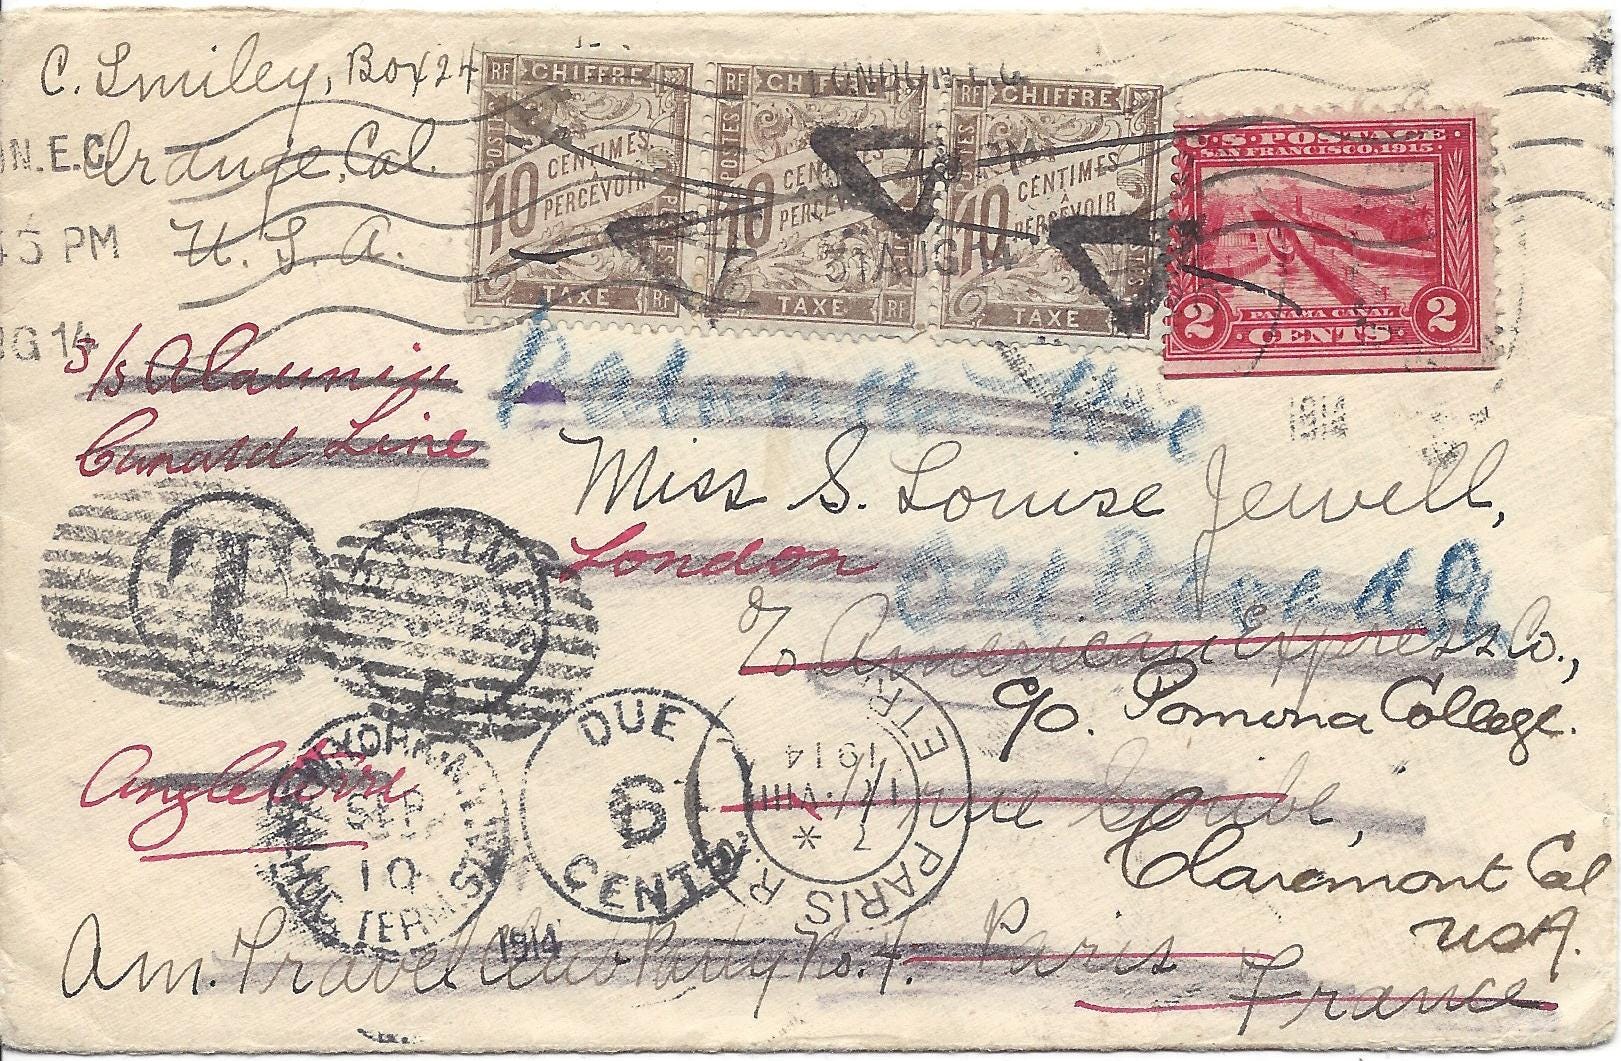 C. Smiley, Box 24
Orange, Cal.
U. S. A.
N.E.C
45 PM
UG 14
RF CHIFFRE
POSTES
10 CENTIMES
À
PERCEVOIR
TAXE RF
RF CHIFFRE
POSTES
10 CENTIMES
À
PERCEVOIR
TAXE RF
RF CHIFFRE
POSTES
10 CENTIMES
À
PERCEVOIR
TAXE
LONDON E.C
31 AUG 14
U.S. POSTAGE
SAN FRANCISCO, 1915
2 PANAMA CANAL 2
CENTS
1914
S/S Alaunia
Cunard Line
Miss S. Louise Jewell,
London
Old Broad St
℅ American Express Co.,
C/o. Pomona College.
Angleterre
11 rue Scribe,
Claremont Cal
USA.
Am. Travel Club Party No. 4. Paris
France
T
NEW YORK, N.Y.
SEP
10
HUD. TERM. STA.
1914
DUE
6
CENTS
PARIS
ETR
7 * 17 VIII
1914